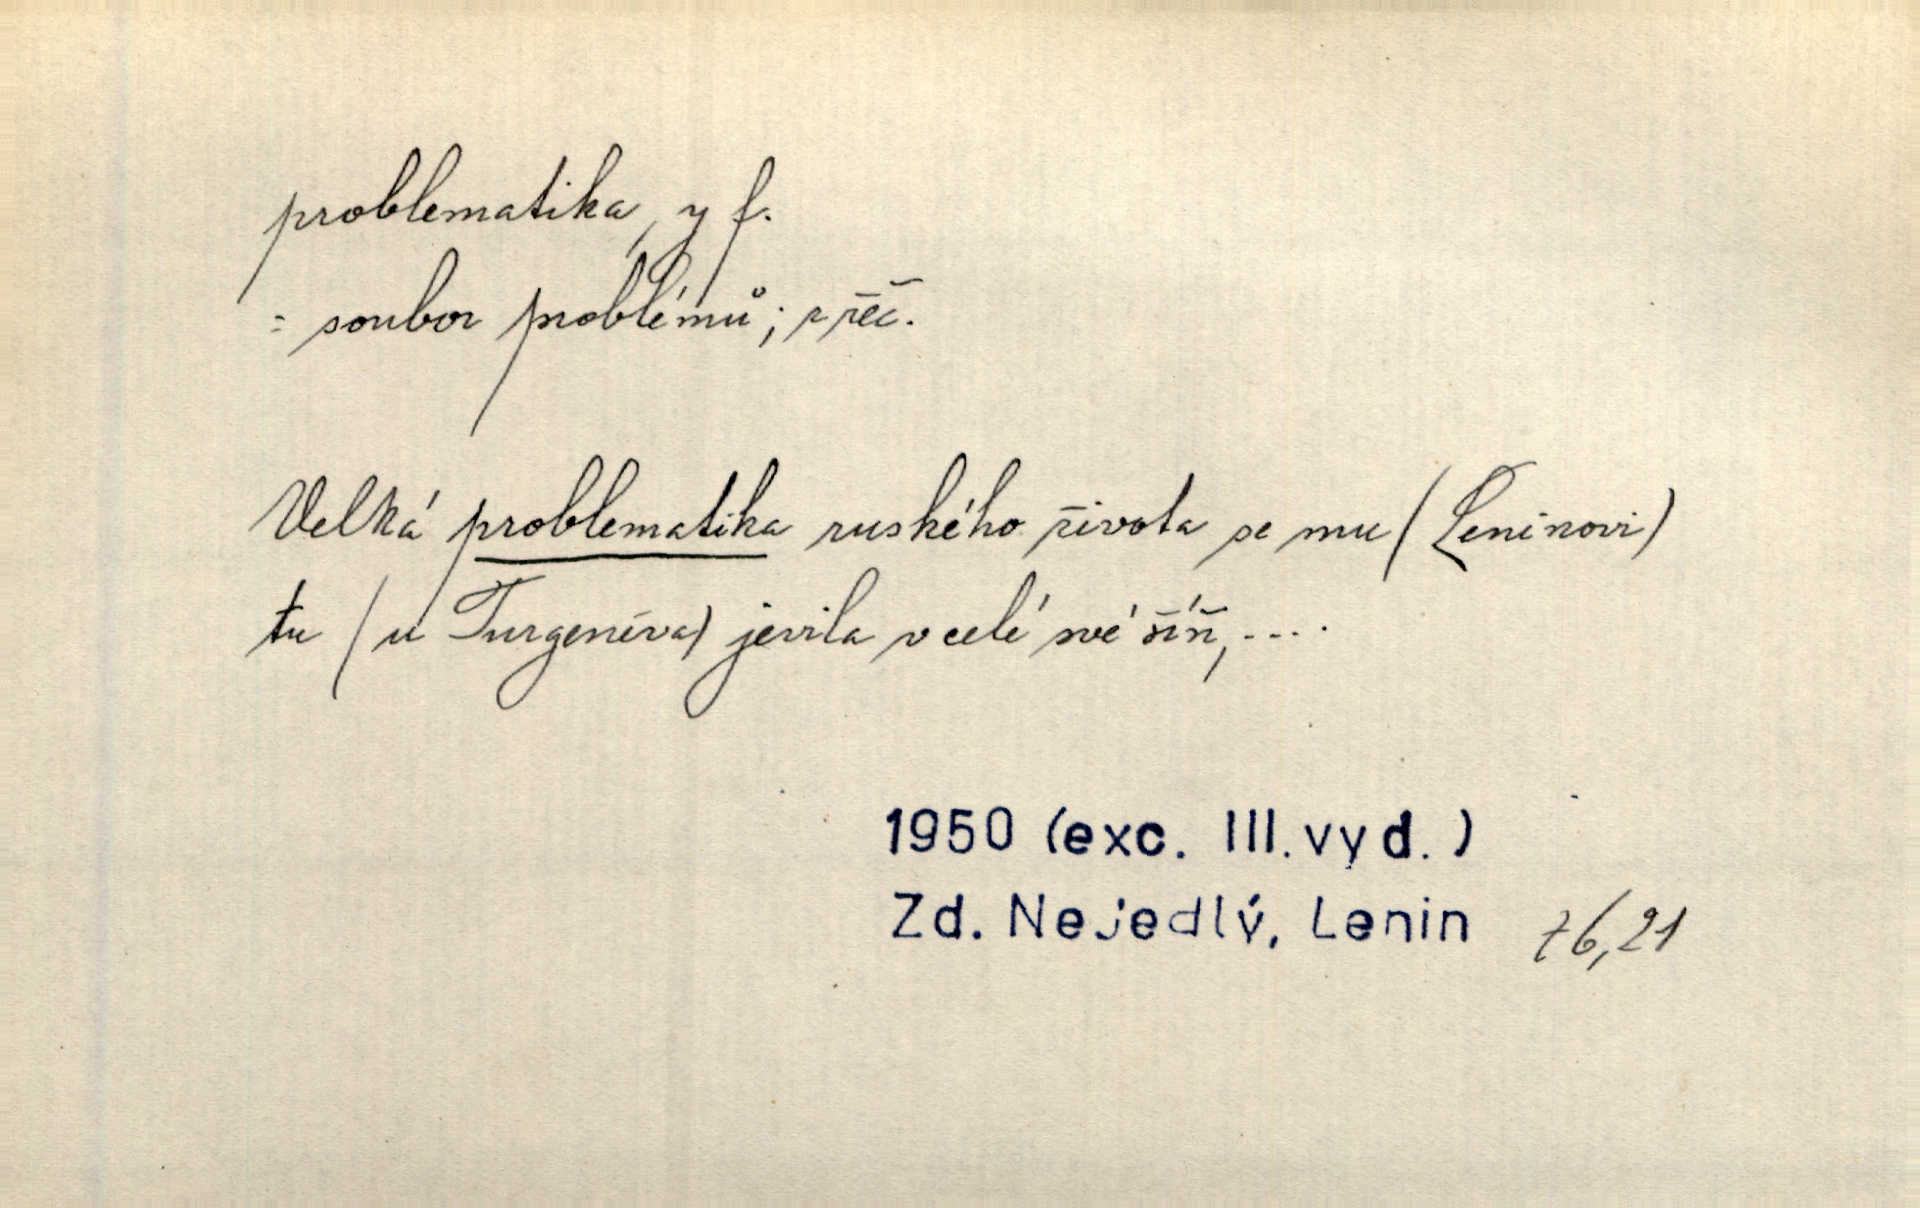 problematika, y f.
= soubor problémů; z řeč.
Velká problematika ruského života se mu (Leninovi)
tu (u Turgeněva) jevila v celé své šíři, ....
1950 (exc. III. vyd.)
Zd. Nejedlý, Lenin 76,21